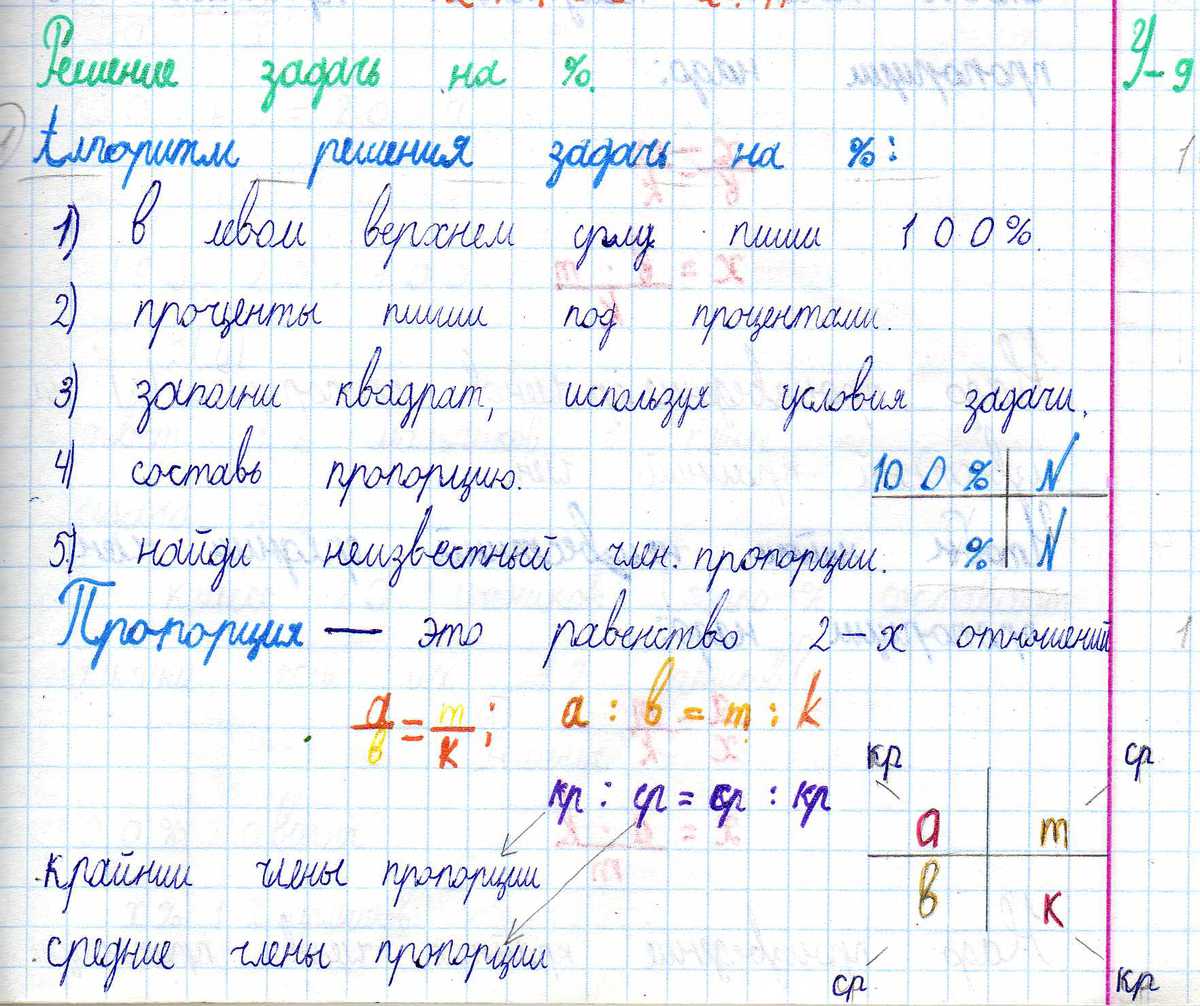 Решение задачь на %. У-9
Алгоритм решения задачь на %: 1
1) в левом верхнем углу пиши 100%.
2) проценты пиши под процентами.
3) заполни квадрат, используя условия задачи.
4) составь пропорцию. 100% N
5) найди неизвестный член. пропорции. % N
Пропорция — это равенство 2-х отношений 1
a/в = m/к; а : в = m : k
кр ср
кр : ср = ср : кр
а m
крайнии члены пропорции
в к
средние члены пропорции
ср кр